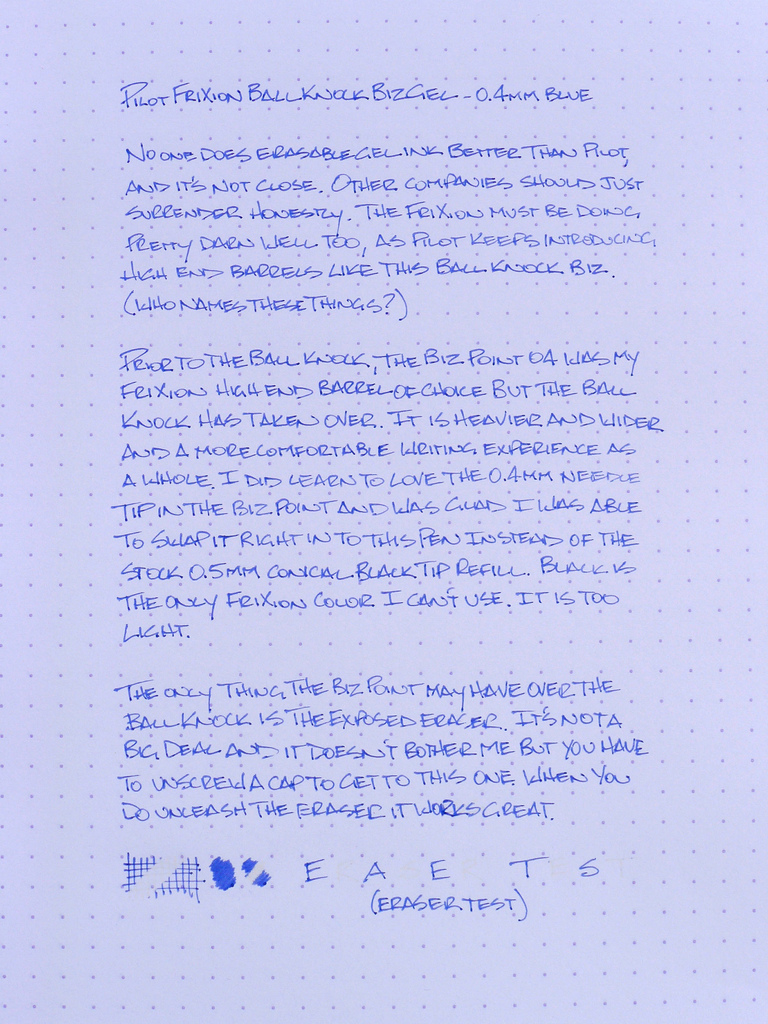 PILOT FRIXION BALL KNOCK BIZ GEL - 0.4MM BLUE
NO ONE DOES ERASABLE GEL INK BETTER THAN PILOT,
AND IT'S NOT CLOSE. OTHER COMPANIES SHOULD JUST
SURRENDER HONESTLY. THE FRIXION MUST BE DOING
PRETTY DARN WELL TOO, AS PILOT KEEPS INTRODUCING
HIGH END BARRELS LIKE THIS BALL KNOCK BIZ.
(WHO NAMES THESE THINGS?)
PRIOR TO THE BALL KNOCK, THE BIZ POINT 04 WAS MY
FRIXION HIGH END BARREL OF CHOICE BUT THE BALL
KNOCK HAS TAKEN OVER. IT IS HEAVIER AND WIDER
AND A MORE COMFORTABLE WRITING EXPERIENCE AS
A WHOLE. I DID LEARN TO LOVE THE 0.4MM NEEDLE
TIP IN THE BIZ POINT AND WAS GLAD I WAS ABLE
TO SWAP IT RIGHT IN TO THIS PEN INSTEAD OF THE
STOCK 0.5MM CONICAL BLACK TIP REFILL. BLACK IS
THE ONLY FRIXION COLOR I CAN'T USE. IT IS TOO
LIGHT.
THE ONLY THING THE BIZ POINT MAY HAVE OVER THE
BALL KNOCK IS THE EXPOSED ERASER. IT'S NOT A
BIG DEAL AND IT DOESN'T BOTHER ME BUT YOU HAVE
TO UNSCREW A CAP TO GET TO THIS ONE. WHEN YOU
DO UNLEASH THE ERASER IT WORKS GREAT.
E A E T S
(ERASER TEST)